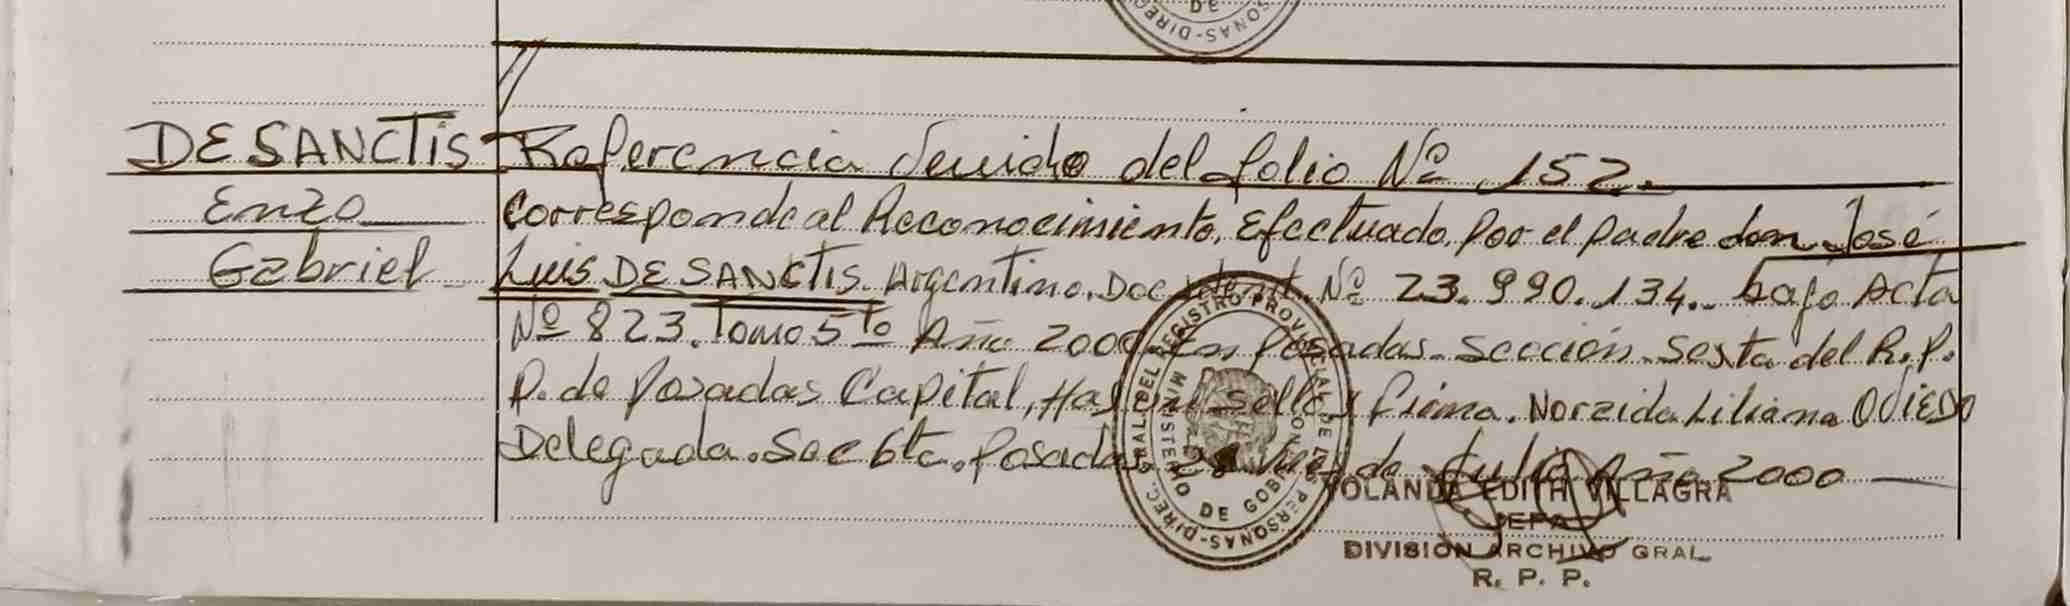 DE
DIREC. SONAS
DE SANCTIS
Enzo
Gabriel
Referencia del folio Nº 152.
Corresponde al Reconocimiento, Efectuado. Por el padre don José
Luis DE SANCTIS. Argentino. Doc. Ident. Nº 23.990.134. bajo Acta
Nº 823. Tomo 5to Año 2000 En Posadas. Sección Sexta del R.P.
P. de Posadas Capital, Hay un Sello y firma. Norzida Liliana OViEDO
Delegada. Sec 6ta. Posadas, de Julio Año 2000
DIREC. GRAL DEL REGISTRO PROVINCIAL DE LAS PERSONAS
MINISTERIO DE GOBIERNO
YOLANDA EDITH VILLAGRA
JEFA
DIVISION ARCHIVO GRAL
R. P. P.